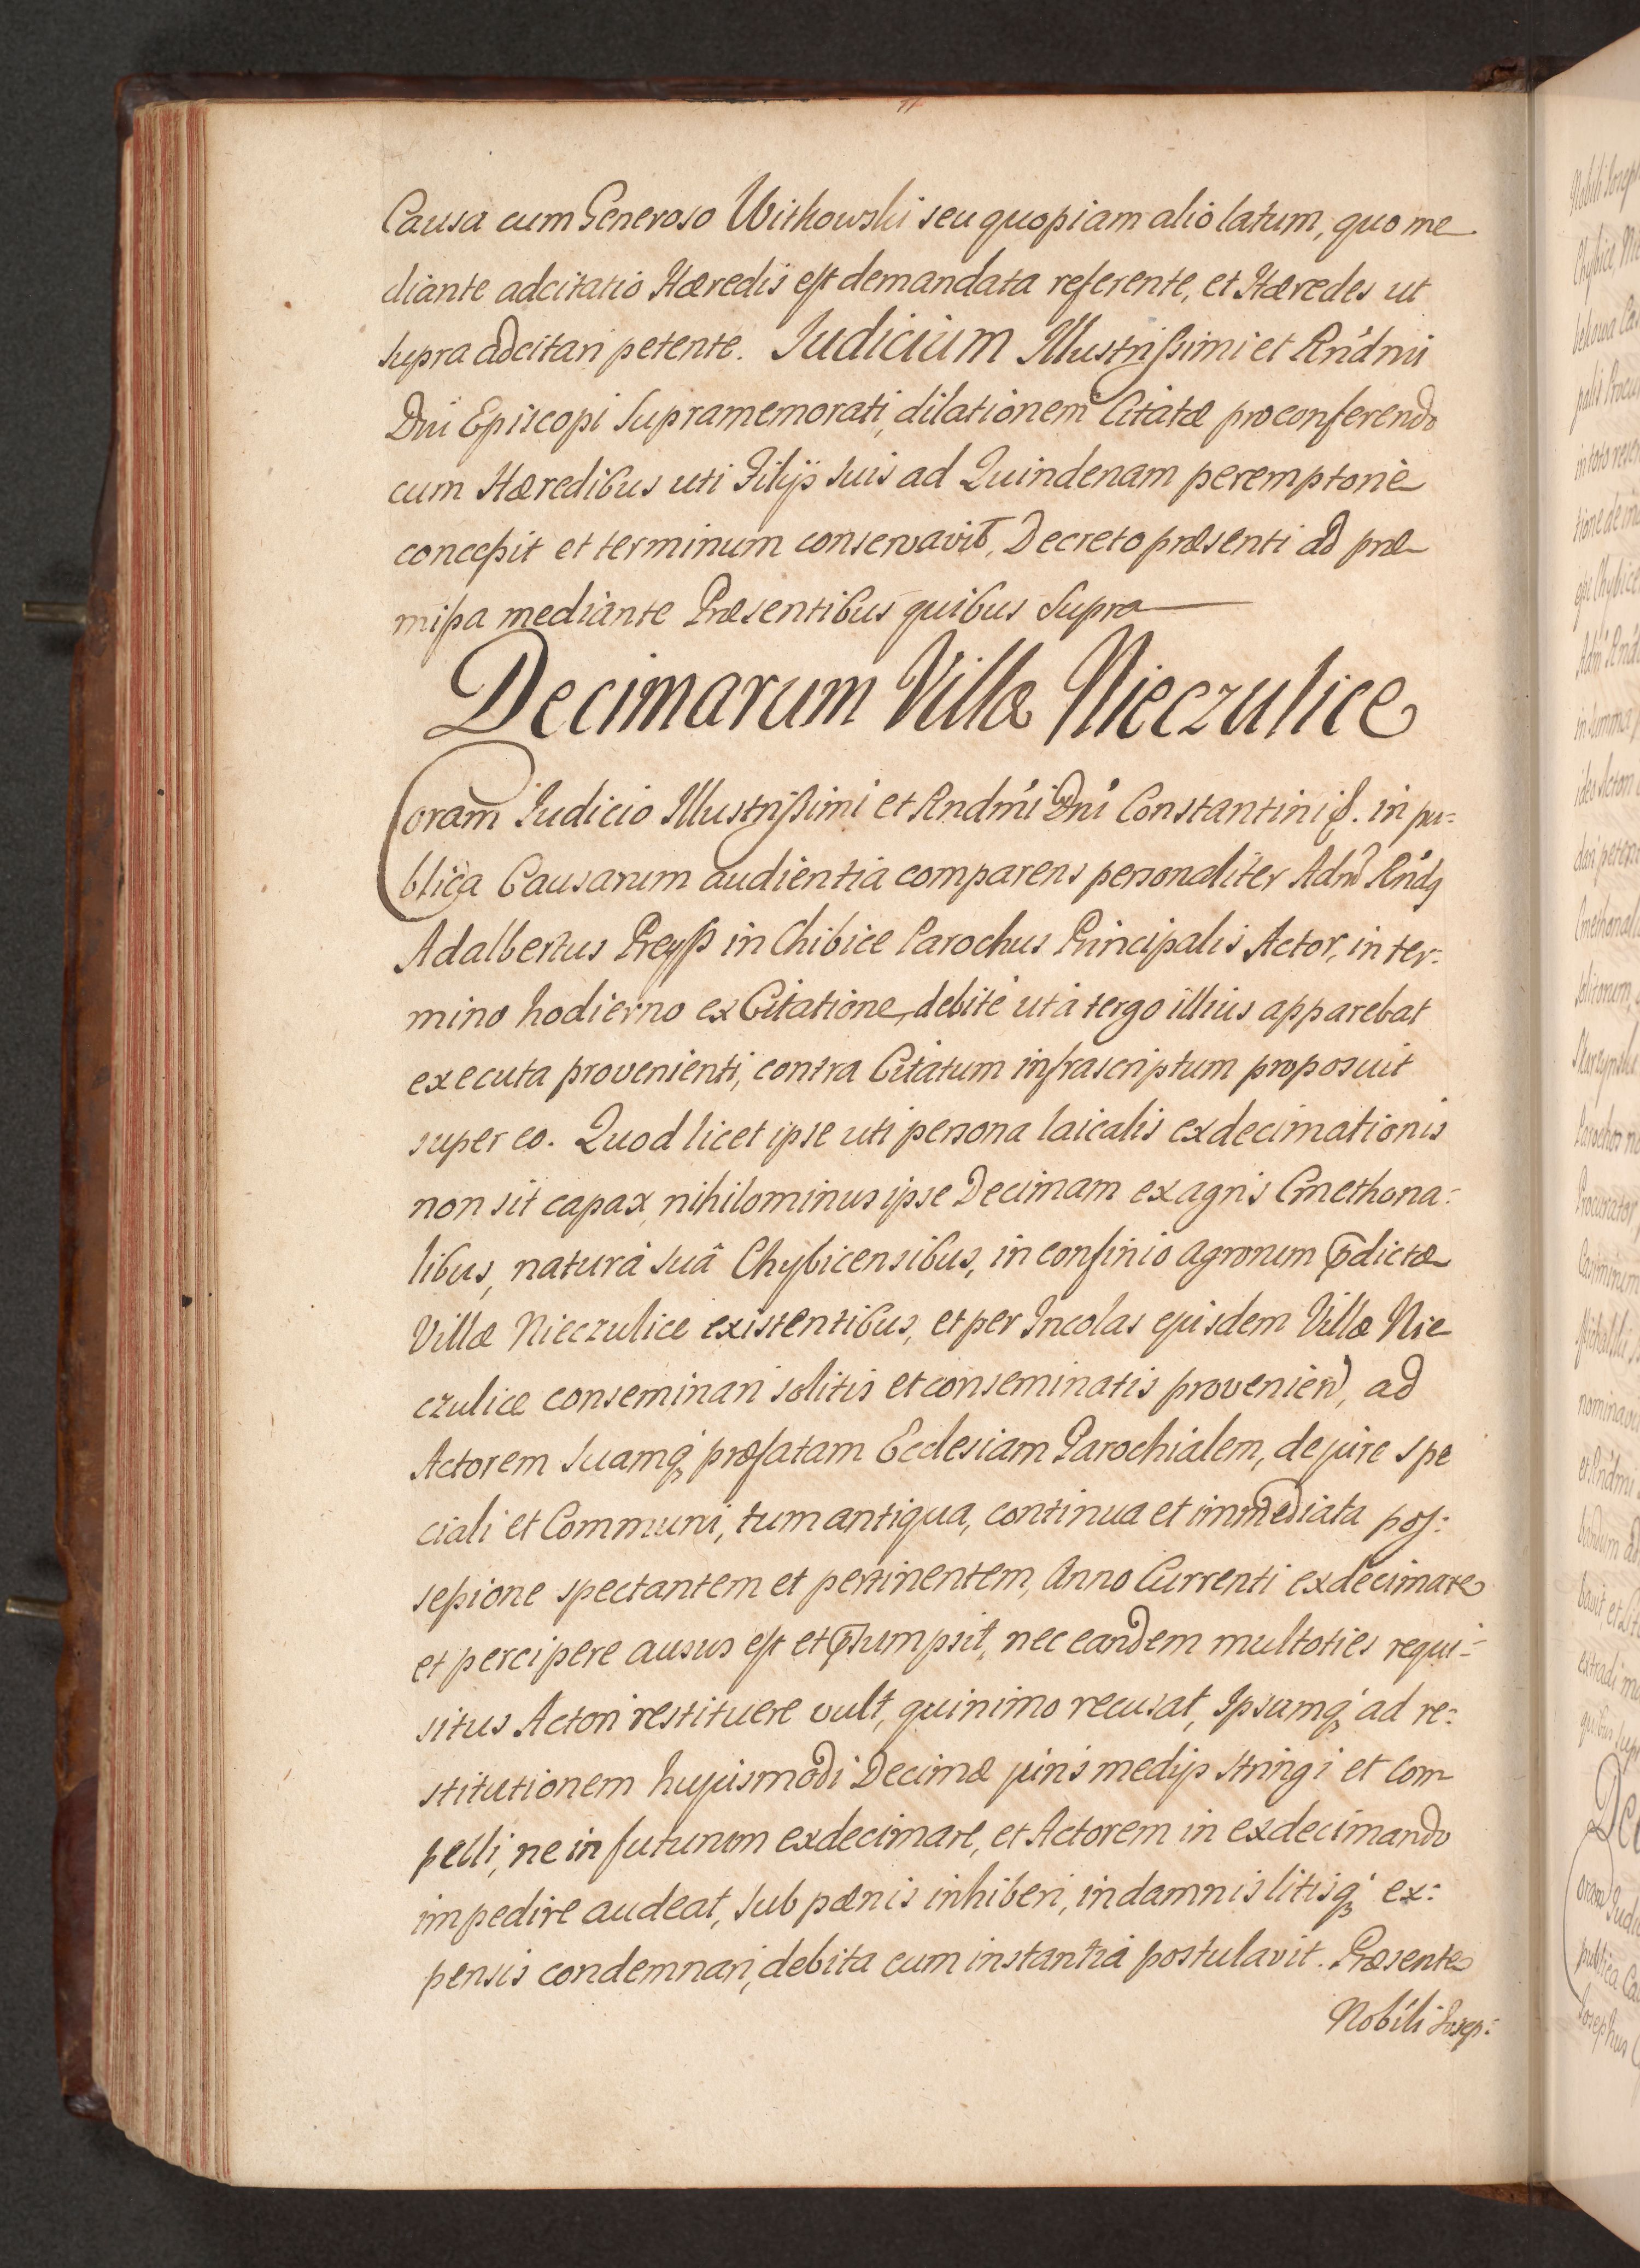 Causa cum Generoso Witkowski seu quopiam alio latum, quo me
diante adcitatio Hæredis est demandata referente, et Hæredes ut
supra adcitari petente. Iudicium Illustrissimi et Rńdmi
Dni Episcopi Supramemorati, dilationem Citatæ pro conferendo
cum Hæredibus uti Filijs suis ad Quindenam peremptorie
concessit et terminum conservavit, Decreto præsenti ad præ
missa mediante Præsentibus quibus Supra
Decimarum Villæ Nieczulice
Coram Iudicio Illustrissimi et Rndmi Dni Constantini &. in pu=
blica Causarum audientia comparens personaliter Adm Rńdq
Adalbertus Preyss in Chibice Parochus Principalis Actor, in ter=
mino hodierno ex Citatione, debite ut á tergo illius apparebat
executa provenienti, contra Citatum infrascriptum proposuit
super eo. Quod licet ipse uti persona laicalis exdecimationis
non sit capax, nihilominus ipse Decimam ex agris Cmethona=
libus, naturá suâ Chybicensibus, in confinio agrorum p̄dictæ
Villæ Nieczulice existentibus, et per Incolas ejusdem Villæ Nie
czulice conseminari solitis et conseminatis provenień, ad
Actorem suamq́ præfatam Ecclesiam Parochialem, de jure spe
ciali et Communi, tum antiqua, continua et immediata pos=
sessione spectantem et pertinentem, Anno Currenti exdecimare
et percipere ausus est et p̄sumpsit, nec eandem multoties requi=
situs Actori restituere vult, quinimo recusat, Ipsumq́ ad re=
stitutionem hujusmodi Decimæ juris medijs stringi et com
pelli, ne in futurum exdecimare, et Actorem in exdecimando
impedire audeat, sub pænis inhiberi, in damnis litisq́ ex=
pensis condemnari, debita cum instantiá postulavit. Præsente
Nobili Josep=